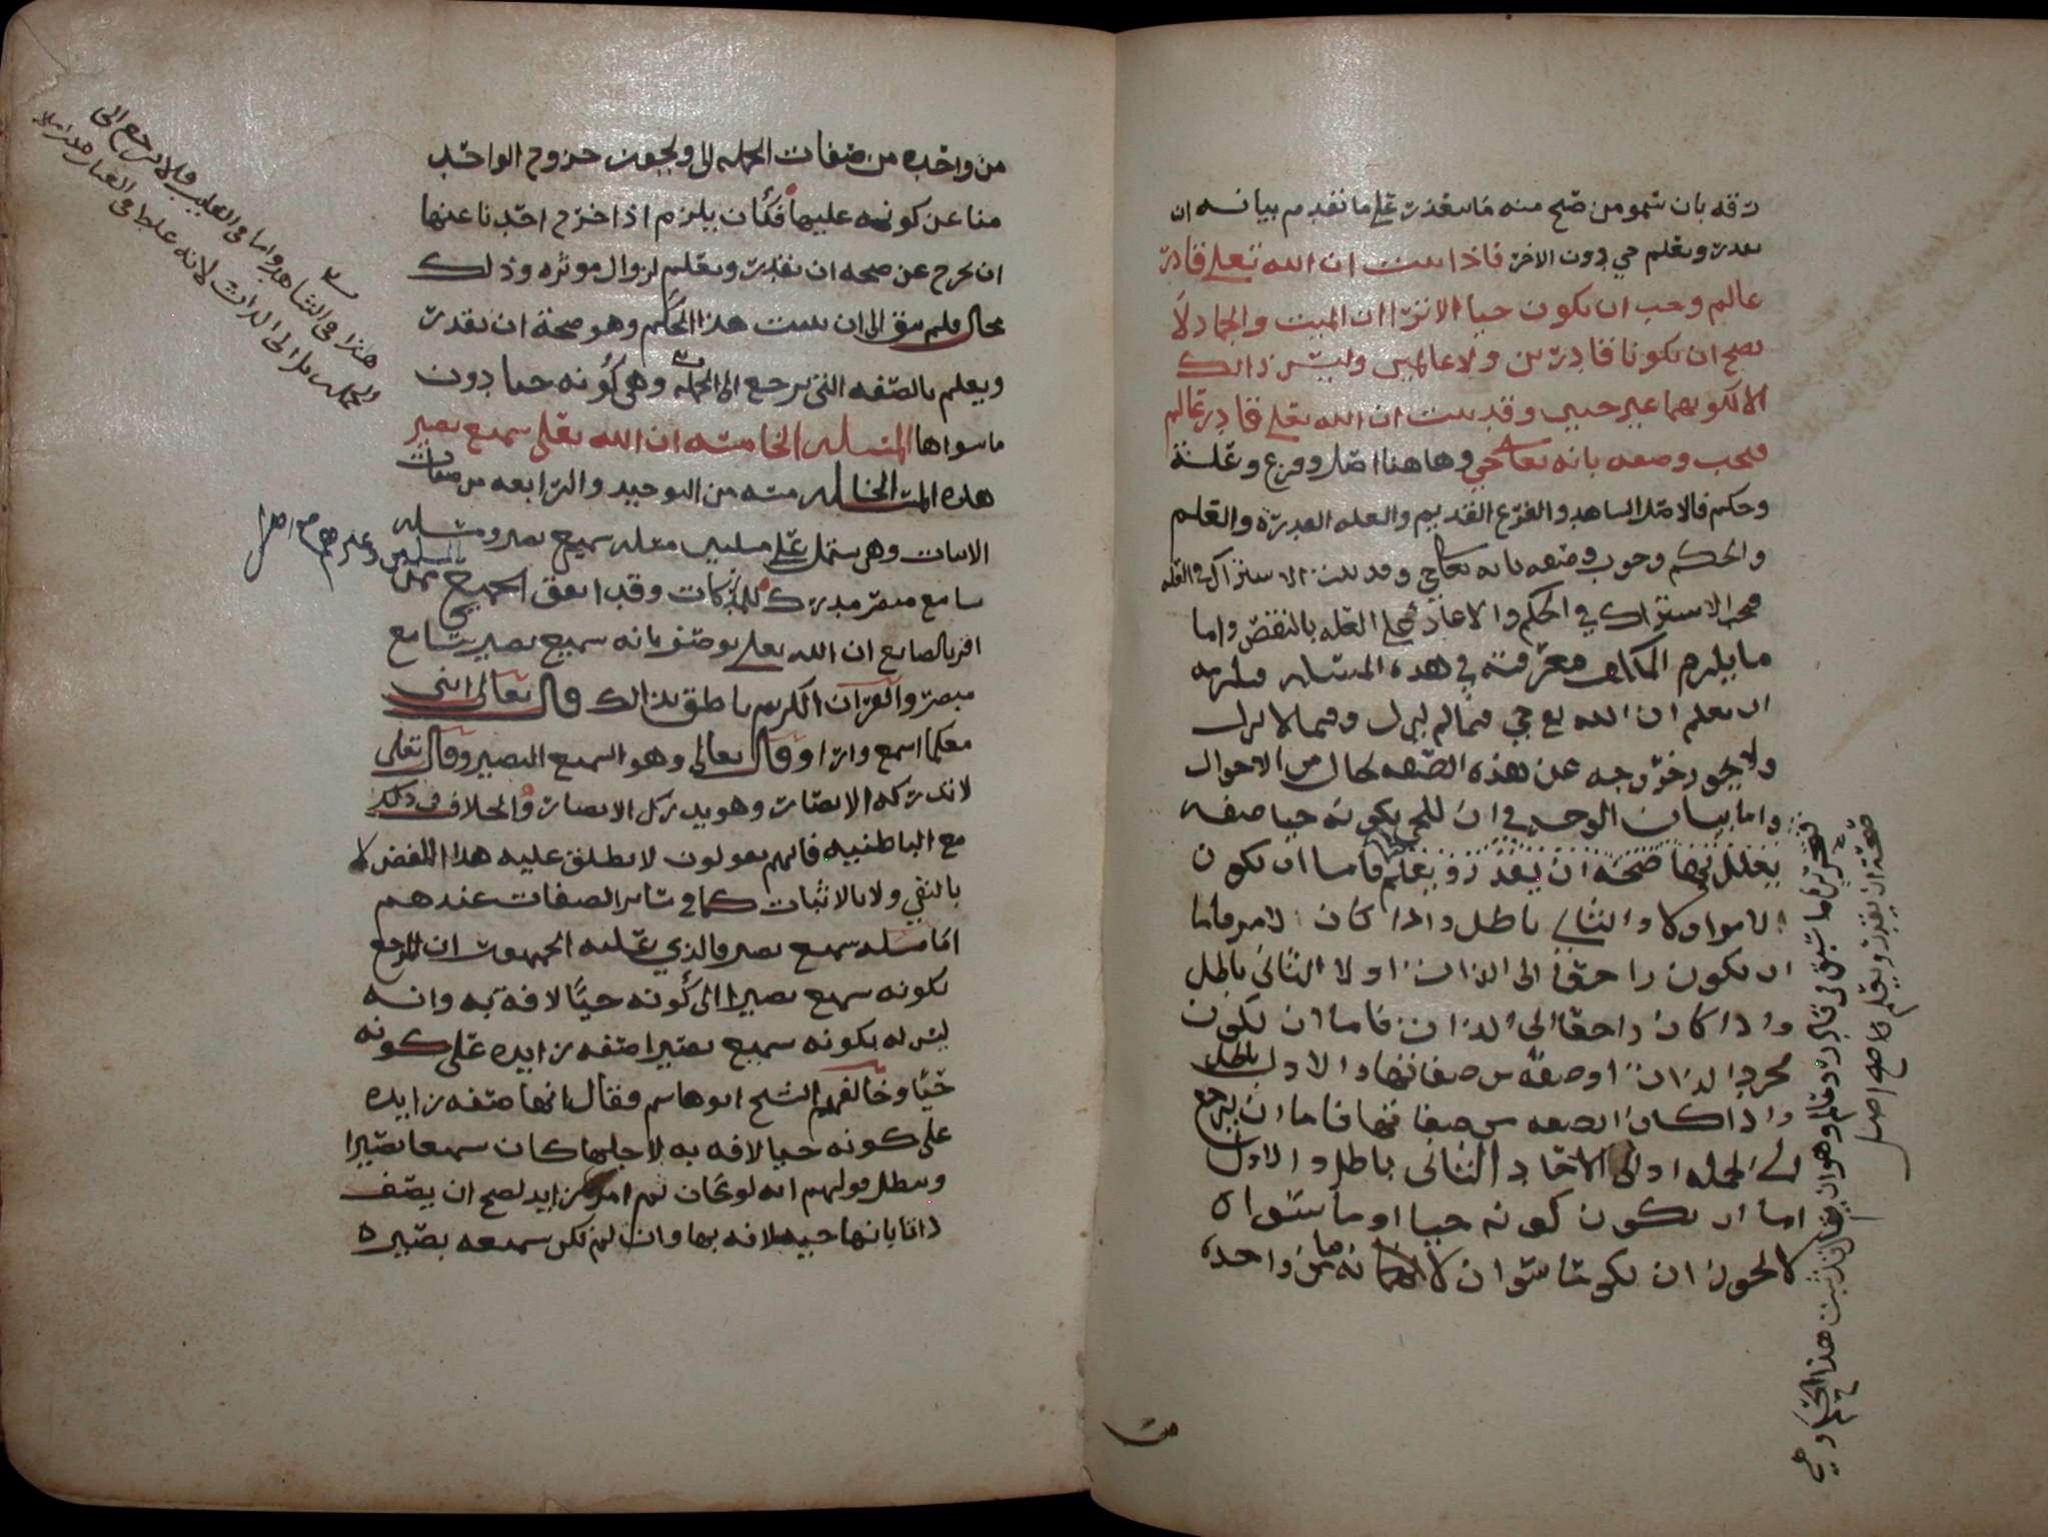 رقه بان سمو من صح منه ما سعذر على ما تقدم بيانه ان
يقدر ويعلم حي دون الاخر فاذا ثبت ان الله تعلى قادر
عالم وجب ان يكون حيا الا ترا ان الميت والجماد لا
يصح ان يكونا قادرين ولا عالمين وليس ذالك
الا لكونهما غير حيين وقد ثبت ان الله تعلى قادر عالم
فيجب وصفه بانه تعالى حي وهاهنا اصل وفرع وعلة
وحكم فالاصل الشاهد والفرع القديم والعله القدرة والعلم
والحكم وجوب وصفه بانه تعالى حي وقد ثبت الاشتراك في العله
فيجب الاشتراك في الحكم والا عاد على العله بالنقض واما
ما يلزم المكلف معرفته في هذه المسئله فيلزمه
ان يعلم ان الله تع حي فيما لم يزل وفيما لا يزال
ولا يجوز خروجه عن هذه الصفه بحال من الاحوال
واما بيان الوجه في ان للحي بكونه حيا صفه
يعلل بها صحة ان يقدر ويعلم فاما ان يكون
لامر اولا والثاني باطل واذا كان لامر فاما
ان يكون راجعا الى الذات اولا الثاني باطل
واذا كان راجعا الى الذات فاما ان يكون
مجرد الذات او صفة من صفاتها والاول باطل
واذا كان الصفه من صفاتها فاما ان يرجع
الى الجمله او الى الاحاد الثاني باطل والاول
اما ان يكون كونه حيا او ما سواه
لا يجوز ان يكون ما سواه لانه ما من واحده
من
صحة ان يقدر ويعلم كما صح اصل
من واحده من صفات الجمله الا ويجوز خروج الواحد
منا عن كونه عليها فكان يلزم اذا خرج احدنا عنها
ان يخرج عن صحه ان يقدر ويعلم لزوال موثره وذلك
محال فلم يبق الا ان يثبت هذا الحكم وهو صحة ان يقدر
ويعلم بالصفه التي ترجع الى الجمله وهي كونه حيا دون
ما سواها المسئله الخامسه ان الله تعلى سميع بصير
هذه المسئله الخامسه من التوحيد والرابعه من صفات
الاثبات وهي تشتمل على مسئلتين مسئله سميع بصير ومسئله
سامع مبصر مدرك للمدركات وقد اتفق الجميع ممن
المسلمين وغيرهم صح اصل
اقر بالصانع ان الله تعلى يوصف بانه سميع بصير سامع
مبصر والقران الكريم ناطق بذالك قال تعالى انني
معكما اسمع وارا وقال تعالى وهو السميع البصير وقال تعلى
لا تدركه الابصار وهو يدرك الابصار والخلاف في ذلك
مع الباطنيه فانهم يقولون لا يطلق عليه هذا اللفض لا
بالنفي ولا بالاثبات كما في سائر الصفات عندهم
اما مسئله سميع بصير فالذي عليه الجمهور ان المرجع
بكونه سميع بصيرا الى كونه حيًا لا افة به وانه
ليس له بكونه سميع بصيرا صفه زايده على كونه
حيًا وخالفهم الشيخ ابو هاشم فقال انها صفه زايده
على كونه حيا لا افه به لاجلها كان سميعا بصيرا
ويبطل قولهم انه لو كان ثم امر زايد لصح ان يصف
ذاتا بانها حيه لا افه بها وان لم تكن سميعه بصيره
هذا في الشاهد واما في الغايب فلا يرجع الى
الجمله بل الى الذات لانه غلط في العباره